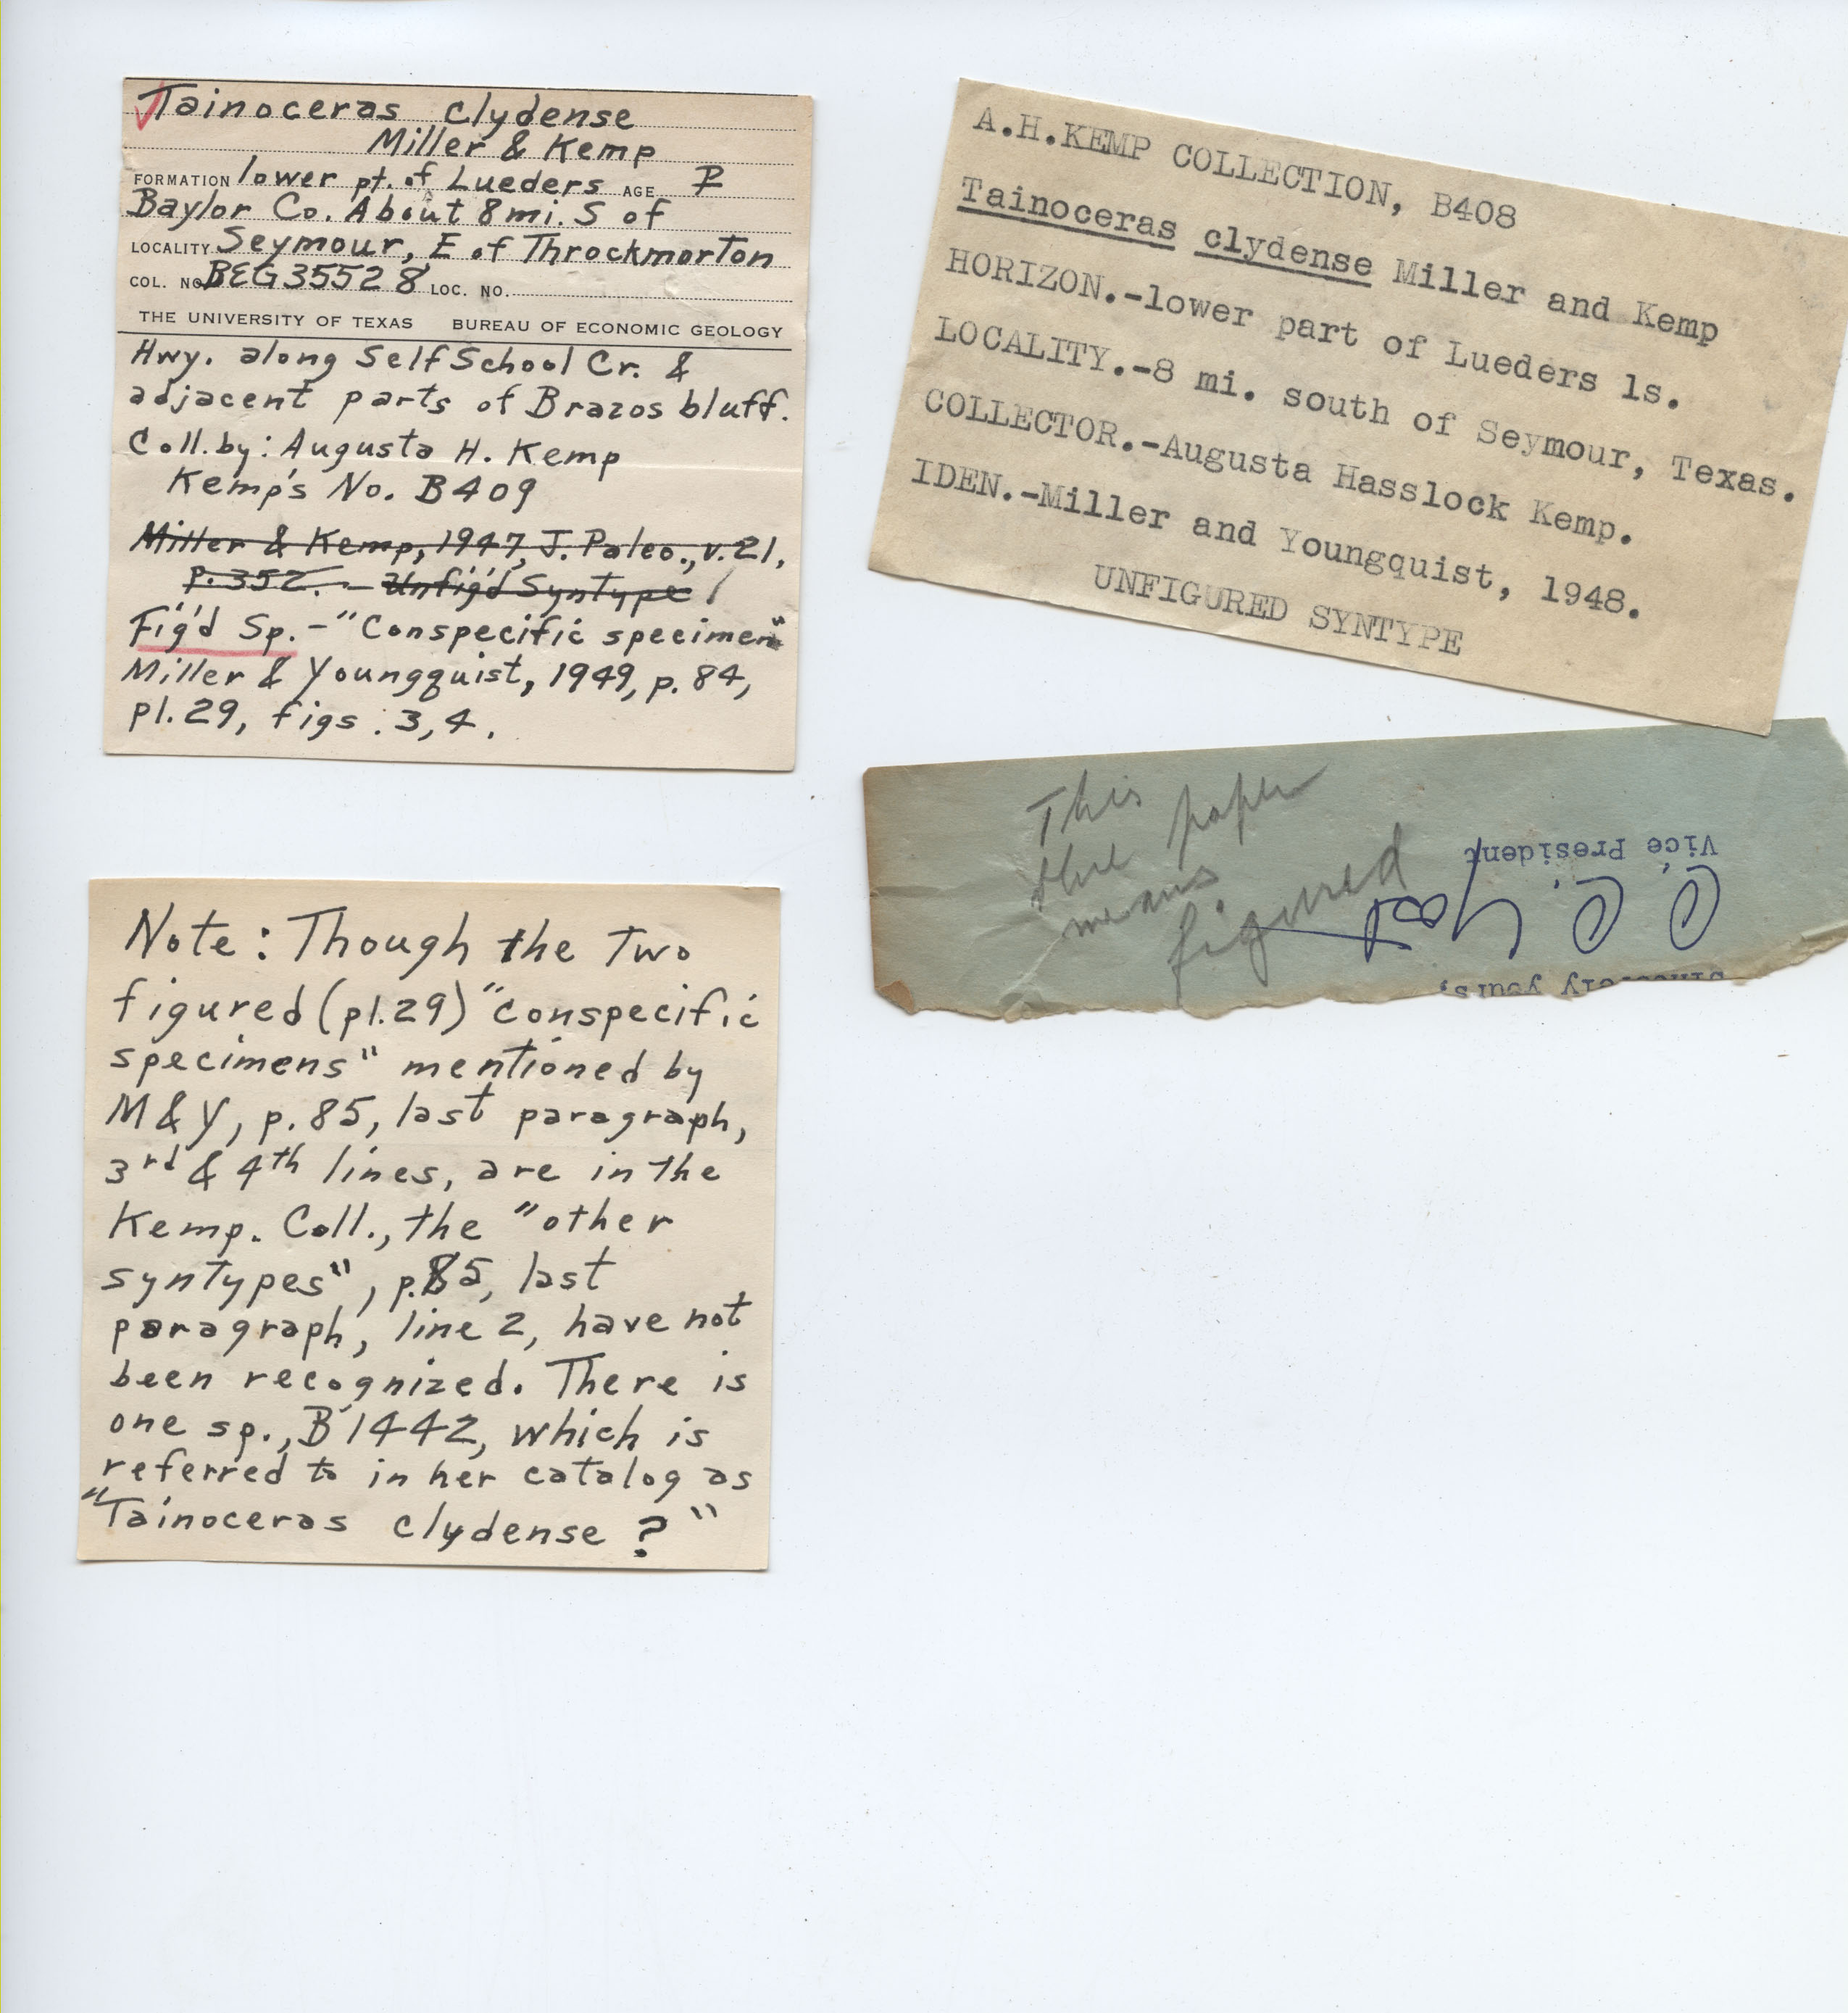 Tainoceras clydense
Miller & Kemp
FORMATION lower pt. of Lueders AGE P
Baylor Co. About 8 mi. S of
LOCALITY Seymour, E of Throckmorton
COL. NO. BEG35528 LOC. NO.
THE UNIVERSITY OF TEXAS BUREAU OF ECONOMIC GEOLOGY
Hwy. along Self School Cr. &
adjacent parts of Brazos bluff.
Coll. by: Augusta H. Kemp
Kemp's No. B409
Miller & Kemp, 1947, J. Paleo., v. 21,
p. 352. – Unfig'd Syntype
Fig'd Sp. – "Conspecific specimen"
Miller & Youngquist, 1949, p. 84,
pl. 29, figs. 3, 4.
A.H.KEMP COLLECTION, B408
Tainoceras clydense Miller and Kemp
HORIZON.-lower part of Lueders ls.
LOCALITY.-8 mi. south of Seymour, Texas.
COLLECTOR.-Augusta Hasslock Kemp.
IDEN.-Miller and Youngquist, 1948.
UNFIGURED SYNTYPE
This
blue paper
means
figured
Sincerely yours,
C. C. Yost
Vice President
Note: Though the two
figured (pl. 29) "conspecific
specimens" mentioned by
M & Y, p. 85, last paragraph,
3rd & 4th lines, are in the
Kemp. Coll., the "other
syntypes", p. 85, last
paragraph, line 2, have not
been recognized. There is
one sp., B1442, which is
referred to in her catalog as
"Tainoceras clydense ?"